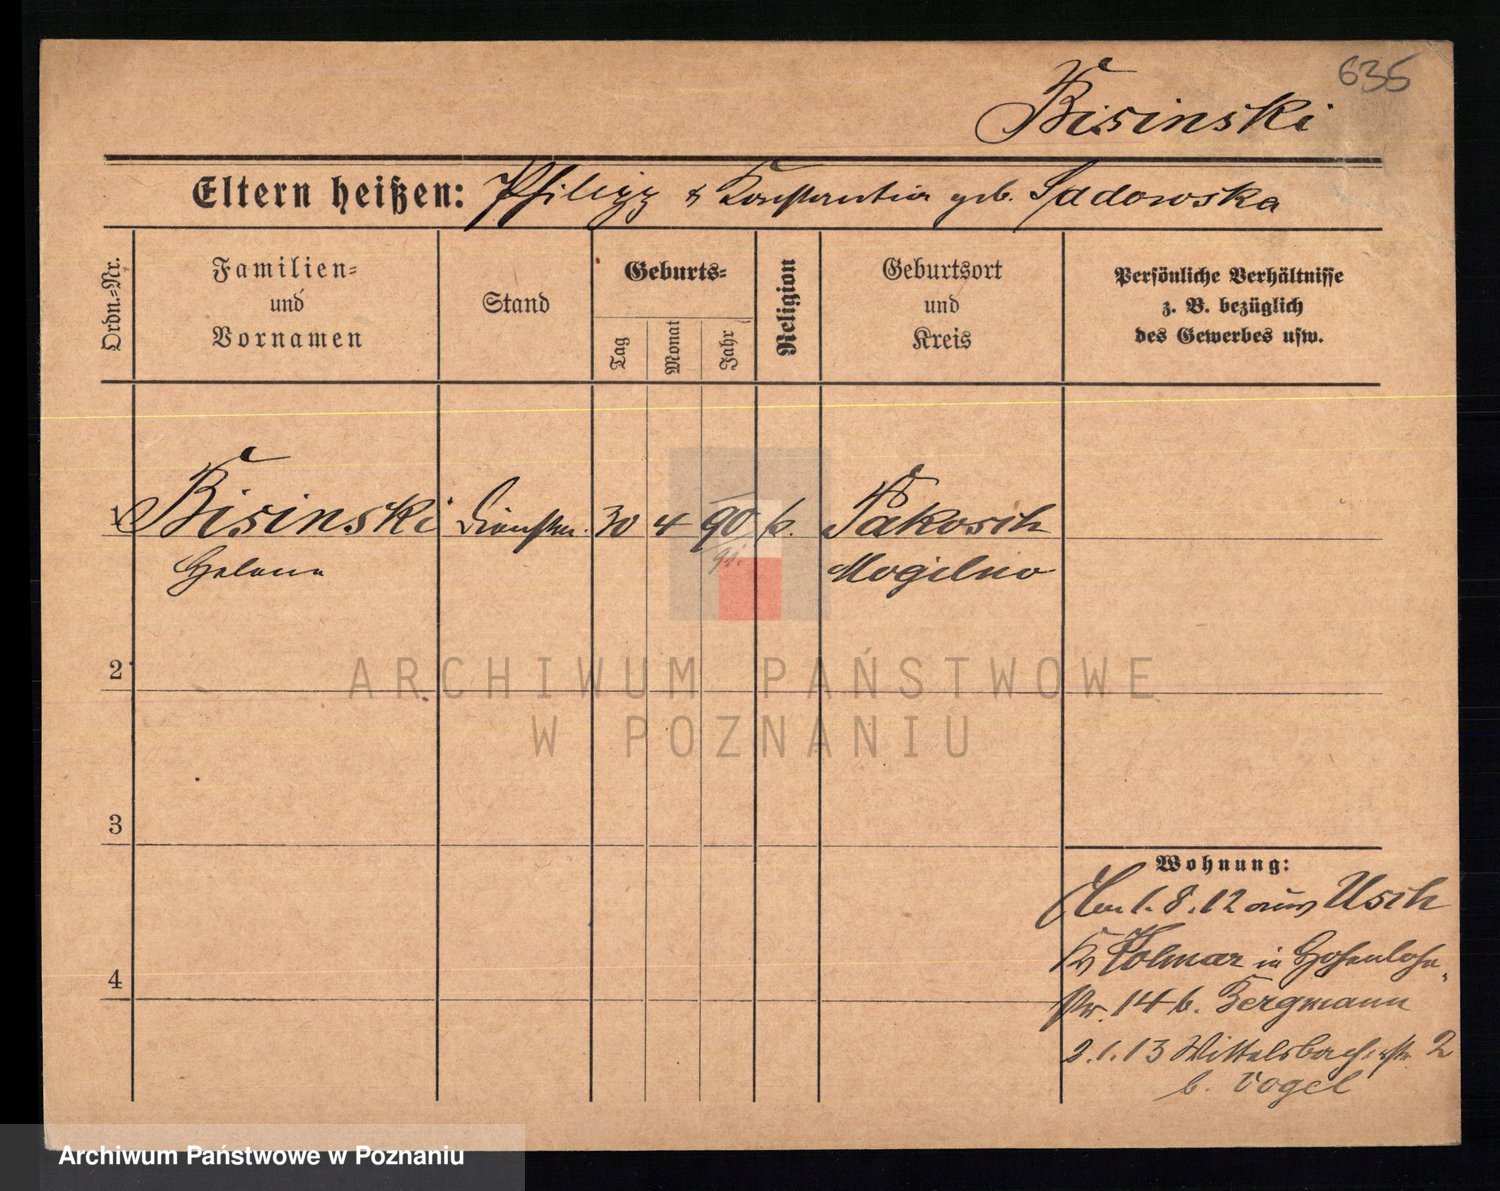 635
Bisinski
Eltern heißen: Philipp & Konstantia geb. Sadowska
Ordn.=Nr.
Familien=
und
Vornamen
Stand
Geburts=
Tag
Monat
Jahr
Religion
Geburtsort
und
Kreis
Persönliche Verhältnisse
z. B. bezüglich
des Gewerbes usw.
1 Bisinski Dienstm. 30 4 90 k. Pakosch
Helene 91. Mogilno
2
ARCHIWUM PAŃSTWOWE
W POZNANIU
3
Wohnung:
1.8.12 aus Usch
Kr Kolmar in Hohenlohe
str. 14 b. Bergmann
4
2.1.13 Wittelsbacherstr 2
b. Vogel
Archiwum Państwowe w Poznaniu